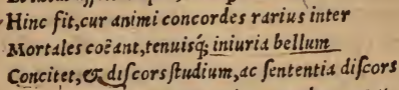 Hinc fit,cur animi concordes rarius inter
Mortales coëant,tenuisq́; iniuria bellum
Concitet,& discors studium,ac sententia discors